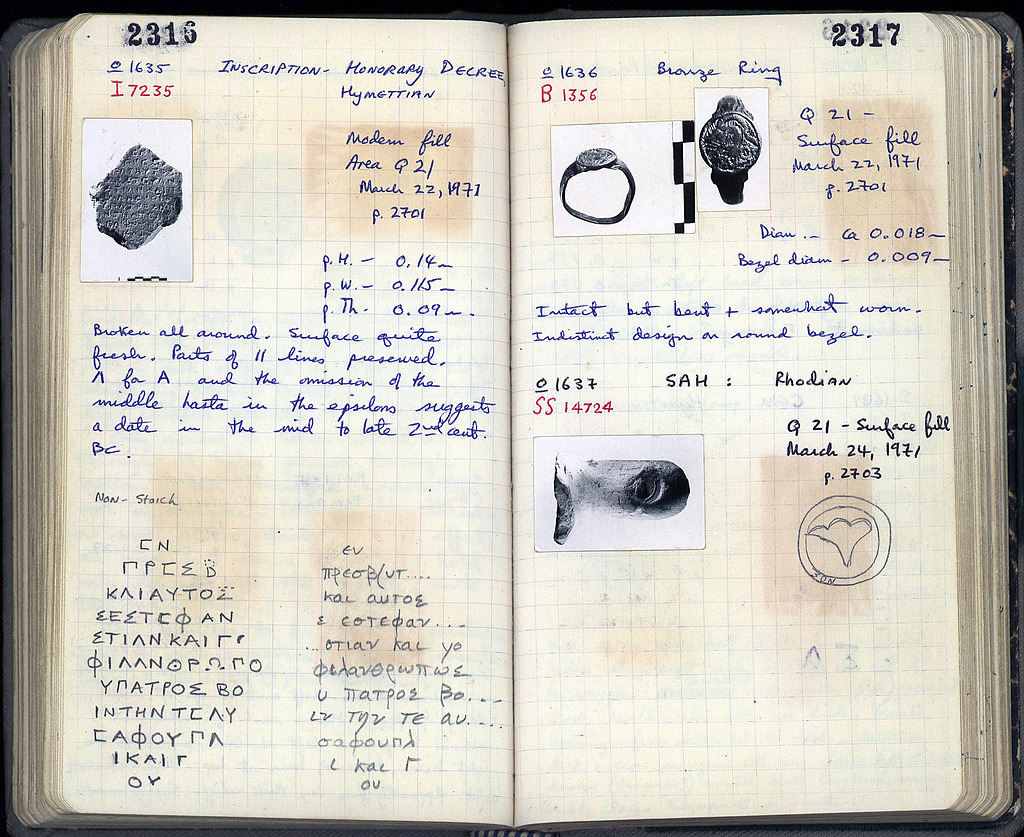 2316
O 1635 INSCRIPTION - HONORARY DECREE
I 7235 HYMETTIAN
Modern fill
Area Q 21
March 22, 1971
p. 2701
p. H. - 0.14 m
p. W. - 0.115 m
p. Th. 0.09 m.
Broken all around. Surface quite
fresh. Parts of 11 lines preserved.
Λ for A and the omission of the
middle hasta in the epsilons suggests
a date in the mid to late 2nd cent.
BC.
NON-Stoich
ΕΝ
ΠΡΕΣΒ
ΚΛΙΑΥΤΟΣ
ΣΕΣΤΕΦΑΝ
ΣΤΙΛΝΚΑΙΓ
ΦΙΛΑΝΘΡΩΠΟ
ΥΠΑΤΡΟΣ ΒΟ
ΙΝΤΗΝΤΕΛΥ
ΣΑΦΟΥΠΛ
ΙΚΑΙΓ
ΟΥ
εν
πρεσβ/υτ....
και αυτος
ς εστεφαν...
...στιαν και γο
φιλανθρωπως
υ πατρος βο....
ιν την τε αυ....
σαφουπλ
ι και Γ
ου
2317
O 1636 Bronze Ring
B 1356
Q 21 -
Surface fill
March 22, 1971
p. 2701
Diam. - ca 0.018 m
Bezel diam - 0.009 m
Intact but bent + somewhat worn.
Indistinct design on round bezel.
O 1637 SAH : RHODIAN
SS 14724
Q 21 - Surface fill
March 24, 1971
p. 2703
ΣΩΝ